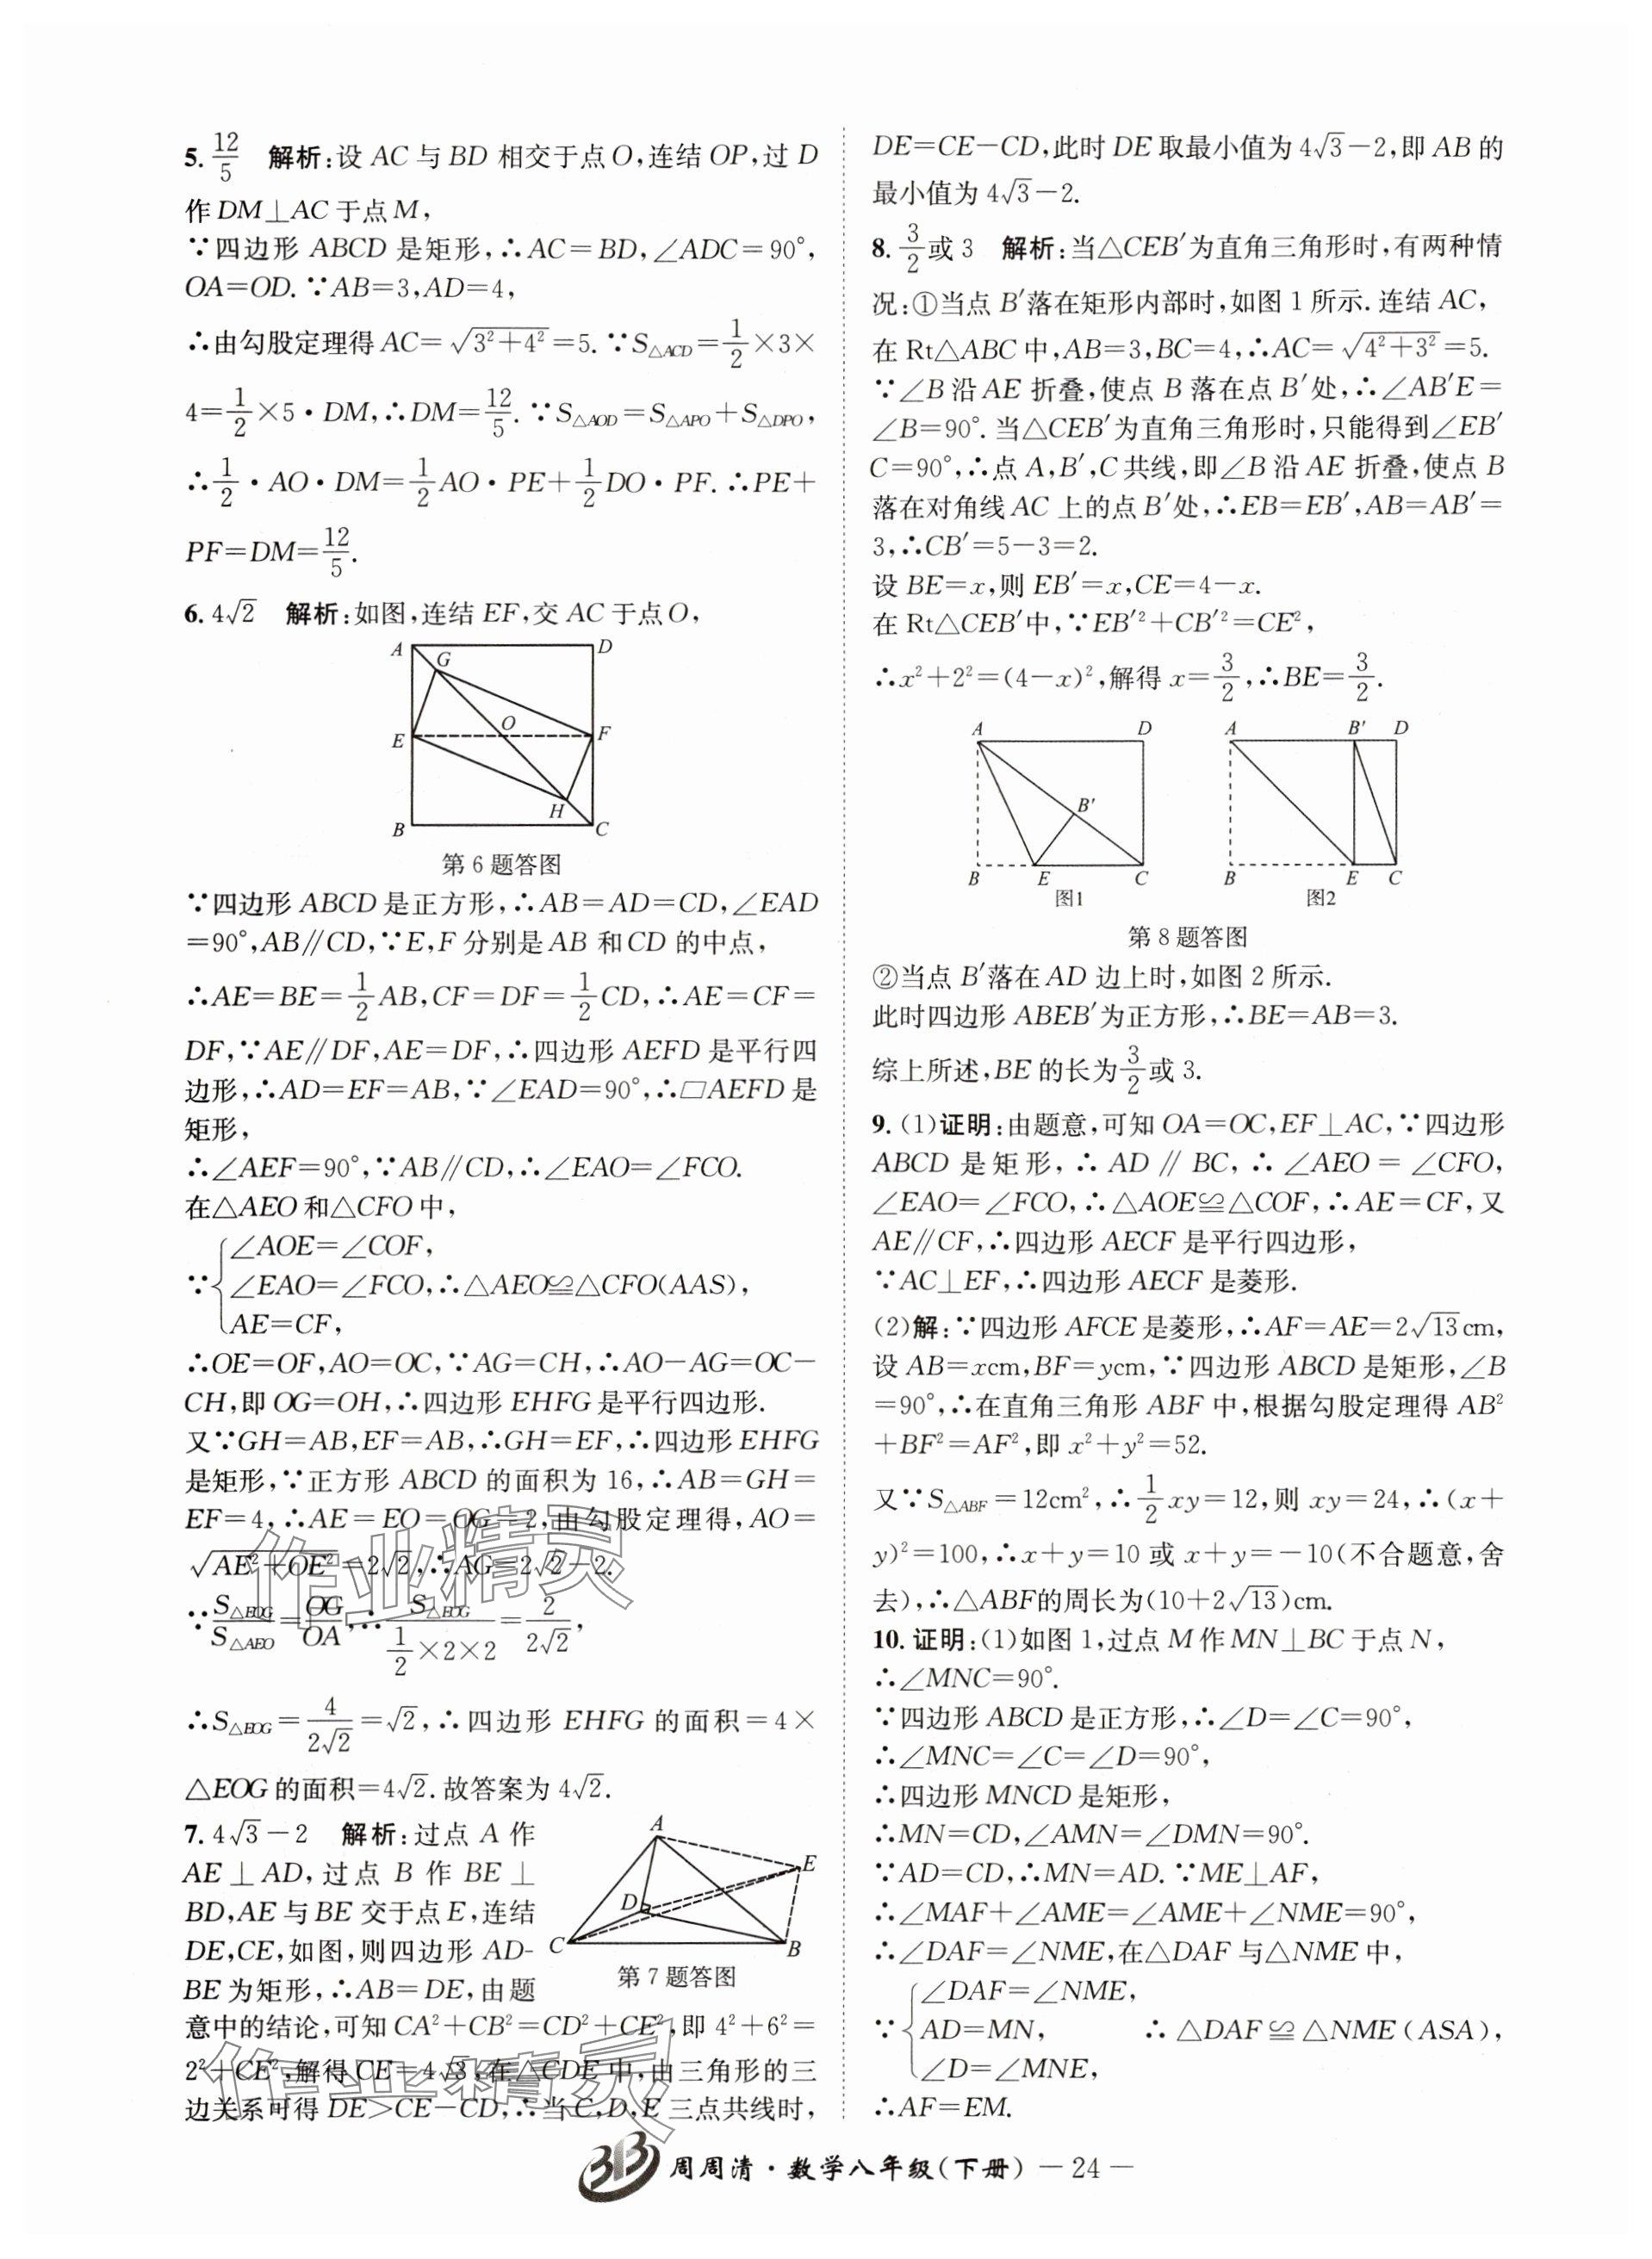 5. 12/5 解析:设 AC 与 BD 相交于点O,连结OP,过 D
作DM⊥AC于点M,
∵四边形 ABCD 是矩形,∴AC=BD,∠ADC=90°,
OA=OD.∵AB=3,AD=4,
∴由勾股定理得AC=√(3²+4²)=5.∵S△ACD=1/2×3×
4=1/2×5·DM,∴DM=12/5.∵S△AOD=S△APO+S△DPO,
∴1/2·AO·DM=1/2AO·PE+1/2DO·PF.∴PE+
PF=DM=12/5.
6. 4√2 解析:如图,连结EF,交AC于点O,
A
G
D
O
E
F
H
B
C
第6题答图
∵四边形ABCD是正方形,∴AB=AD=CD,∠EAD
=90°,AB∥CD,∵E,F分别是AB 和CD的中点,
∴AE=BE=1/2AB,CF=DF=1/2CD,∴AE=CF=
DF,∵AE∥DF,AE=DF,∴四边形AEFD是平行四
边形,∴AD=EF=AB,∵∠EAD=90°,∴▱AEFD是
矩形,
∴∠AEF=90°,∵AB∥CD,∴∠EAO=∠FCO.
在△AEO和△CFO中,
∠AOE=∠COF,
∵{∠EAO=∠FCO,∴△AEO≌△CFO(AAS),
AE=CF,
∴OE=OF,AO=OC,∵AG=CH,∴AO-AG=OC-
CH,即OG=OH,∴四边形EHFG是平行四边形.
又∵GH=AB,EF=AB,∴GH=EF,∴四边形EHFG
是矩形,∵正方形ABCD的面积为16,∴AB=GH=
EF=4,∴AE=EO=OG=2,由勾股定理得,AO=
√(AE²+OE²)=2√2,∴AG=2√2-2.
∵S△EOG/S△AEO=OG/OA,∴S△EOG/(1/2×2×2)=2/(2√2),
∴S△EOG=4/(2√2)=√2,∴四边形EHFG的面积=4×
△EOG的面积=4√2.故答案为4√2.
7. 4√3-2 解析:过点 A 作
AE⊥AD,过点 B 作 BE⊥
BD,AE与BE交于点E,连结
DE,CE,如图,则四边形 AD-
BE为矩形,∴AB=DE,由题
A
E
D
C
B
第7题答图
意中的结论,可知CA²+CB²=CD²+CE²,即4²+6²=
2²+CE²,解得CE=4√3,在△CDE中,由三角形的三
边关系可得DE>CE-CD,∴当C,D,E三点共线时,
DE=CE-CD,此时DE取最小值为4√3-2,即AB的
最小值为4√3-2.
8. 3/2或3 解析:当△CEB′为直角三角形时,有两种情
况:①当点B′落在矩形内部时,如图1所示.连结AC,
在Rt△ABC中,AB=3,BC=4,∴AC=√(4²+3²)=5.
∵∠B沿AE折叠,使点B落在点B′处,∴∠AB′E=
∠B=90°.当△CEB′为直角三角形时,只能得到∠EB′
C=90°,∴点A,B′,C共线,即∠B沿AE折叠,使点B
落在对角线AC上的点B′处,∴EB=EB′,AB=AB′=
3,∴CB′=5-3=2.
设BE=x,则EB′=x,CE=4-x.
在Rt△CEB′中,∵EB′²+CB′²=CE²,
∴x²+2²=(4-x)²,解得x=3/2,∴BE=3/2.
A
D
B′
B
E
C
图1
A
B′
D
B
E
C
图2
第8题答图
②当点B′落在AD边上时,如图2所示.
此时四边形ABEB′为正方形,∴BE=AB=3.
综上所述,BE的长为3/2或3.
9. (1)证明:由题意,可知OA=OC,EF⊥AC,∵四边形
ABCD是矩形,∴AD∥BC,∴∠AEO=∠CFO,
∠EAO=∠FCO,∴△AOE≌△COF,∴AE=CF,又
AE∥CF,∴四边形AECF是平行四边形,
∵AC⊥EF,∴四边形AECF是菱形.
(2)解:∵四边形AFCE是菱形,∴AF=AE=2√13cm,
设AB=xcm,BF=ycm,∵四边形ABCD是矩形,∠B
=90°,∴在直角三角形ABF中,根据勾股定理得AB²
+BF²=AF²,即x²+y²=52.
又∵S△ABF=12cm²,∴1/2xy=12,则xy=24,∴(x+
y)²=100,∴x+y=10或x+y=-10(不合题意,舍
去),∴△ABF的周长为(10+2√13)cm.
10. 证明:(1)如图1,过点M作MN⊥BC于点N,
∴∠MNC=90°.
∵四边形ABCD是正方形,∴∠D=∠C=90°,
∴∠MNC=∠C=∠D=90°,
∴四边形MNCD是矩形,
∴MN=CD,∠AMN=∠DMN=90°.
∵AD=CD,∴MN=AD.∵ME⊥AF,
∴∠MAF+∠AME=∠AME+∠NME=90°,
∴∠DAF=∠NME,在△DAF与△NME中,
∠DAF=∠NME,
∵{AD=MN, ∴△DAF≌△NME(ASA),
∠D=∠MNE,
∴AF=EM.
作业精灵
作业精灵
周周清·数学八年级(下册) — 24 —